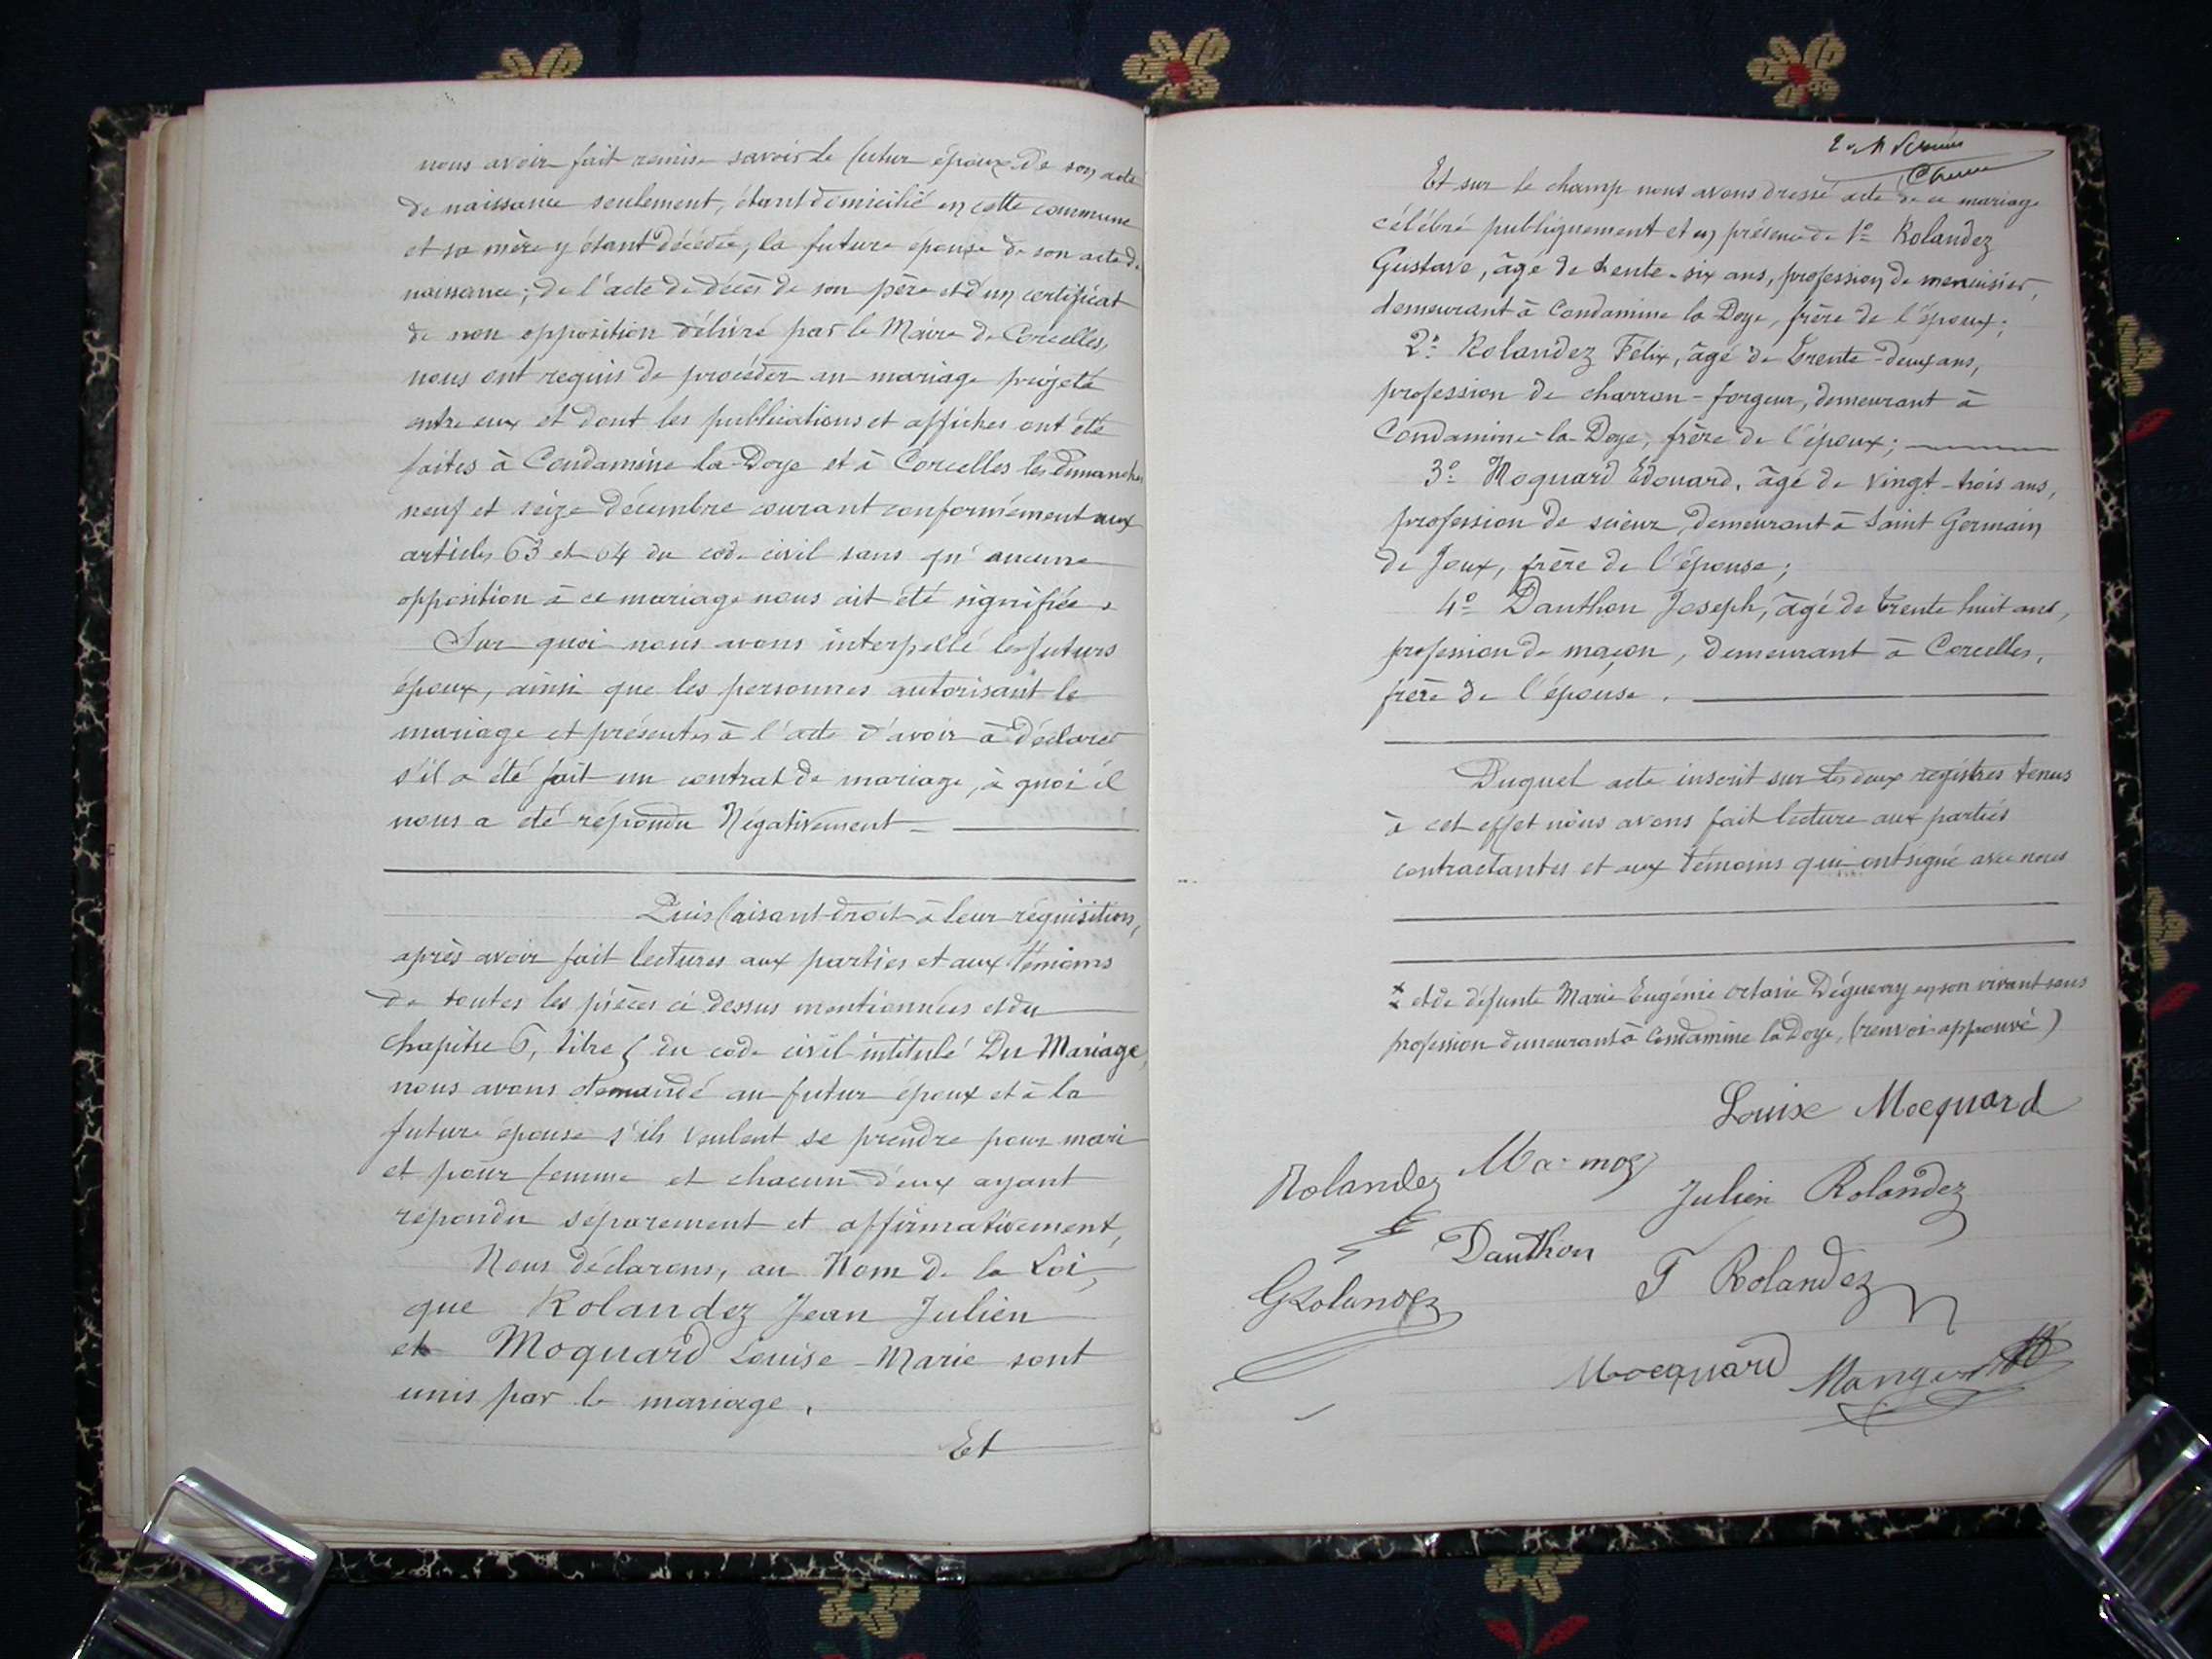 nous avoir fait remise savoir le futur époux de son acte
de naissance seulement, étant domicilié en cette commune
et sa mère y étant décédée, la future epouse de son acte de
naissance; de l'acte de décès de son père et d'un certificat
de non opposition délivré par le Maire de Corcelles,
nous ont requis de procéder au mariage projeté
entre eux et dont les publications et affiches ont été
faites à Condamine la Doye et à Corcelles les dimanches
neuf et seize décembre courant conformément aux
articles 63 et 64 du code civil sans qu'aucune
opposition à ce mariage nous ait été signifiée.
Sur quoi nous avons interpellé les futurs
époux, ainsi que les personnes autorisant le
mariage et présentes à l'acte d'avoir à déclarer
s'il a été fait un contrat de mariage, à quoi il
nous a été répondu Négativement
Puis faisant droit à leur réquisition,
après avoir fait lectures aux parties et aux témoins
de toutes les pièces ci dessus mentionnées et du
chapitre 6, titre 5 du code civil intitulé Du Mariage,
nous avons demandé au futur époux et à la
future épouse s'ils veulent se prendre pour mari
et pour femme et chacun d'eux ayant
répondu séparement et affirmativement,
Nous déclarons, au Nom de la Loi,
que Rolandez Jean Julien
et Moquard Louise-Marie sont
unis par le mariage.
Et
Et sur le champ nous avons dressé acte de ce mariage
célébré publiquement et en présence de 1º Rolandez
Gustave, âgé de trente-six ans, profession de menuisier,
demeurant à Condamine la Doye, frère de l'époux;
2º Rolandez Félix, âgé de trente-deux ans,
profession de charron-forgeur, demeurant à
Condamine-la-Doye, frère de l'époux;
3º Moquard Edouard, âgé de vingt-trois ans,
profession de scieur, demeurant à Saint Germain
de Joux, frère de l'épouse;
4º Danthon Joseph, âgé de trente huit ans,
profession de maçon, demeurant à Corcelles,
frère de l'épouse.
Duquel acte inscrit sur les deux registres tenus
à cet effet nous avons fait lecture aux parties
contractantes et aux témoins qui ont signé avec nous
et de défunte Marie Eugénie Octavie Déguerry en son vivant sans
profession demeurant à Condamine la Doye, (renvoi approuvé)
Louise Mocquard
Rolandez
Julien Rolandez
Danthon
F Rolandez
G Rolandez
Mocquard